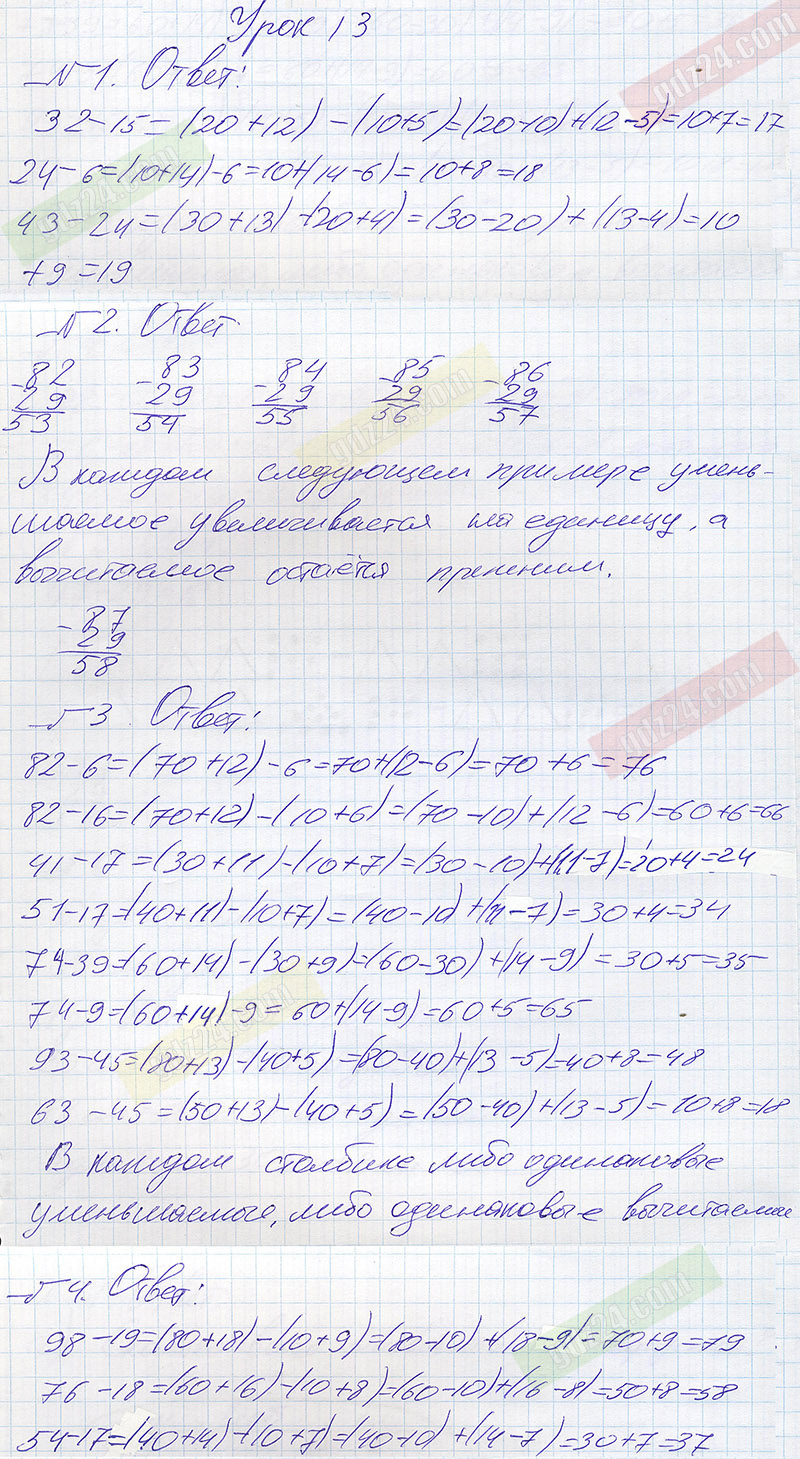 Урок 13
№1. Ответ:
32-15=(20+12)-(10+5)=(20-10)+(12-5)=10+7=17
24-6=(10+14)-6=10+(14-6)=10+8=18
43-24=(30+13)-(20+4)=(30-20)+(13-4)=10
+9=19
№2. Ответ
-82 -83 -84 -85 -86
29 29 29 29 29
53 54 55 56 57
В каждом следующем примере умень-
шаемое увеличивается на единицу, а
вычитаемое остаётся прежним.
-87
29
58
№3 Ответ:
82-6=(70+12)-6=70+(12-6)=70+6=76
82-16=(70+12)-(10+6)=(70-10)+(12-6)=60+6=66
41-17=(30+11)-(10+7)=(30-10)+(11-7)=20+4=24
51-17=(40+11)-(10+7)=(40-10)+(11-7)=30+4=34
74-39=(60+14)-(30+9)=(60-30)+(14-9)=30+5=35
74-9=(60+14)-9=60+(14-9)=60+5=65
93-45=(80+13)-(40+5)=(80-40)+(13-5)=40+8=48
63-45=(50+13)-(40+5)=(50-40)+(13-5)=10+8=18
В каждом столбике либо одинаковые
уменьшаемые, либо одинаковые вычитаемые
№4. Ответ:
98-19=(80+18)-(10+9)=(80-10)+(18-9)=70+9=79
76-18=(60+16)-(10+8)=(60-10)+(16-8)=50+8=58
54-17=(40+14)-(10+7)=(40-10)+(14-7)=30+7=37
gdz24.com
gdz24.com
gdz24.com
gdz24.com
gdz24.com
gdz24.com